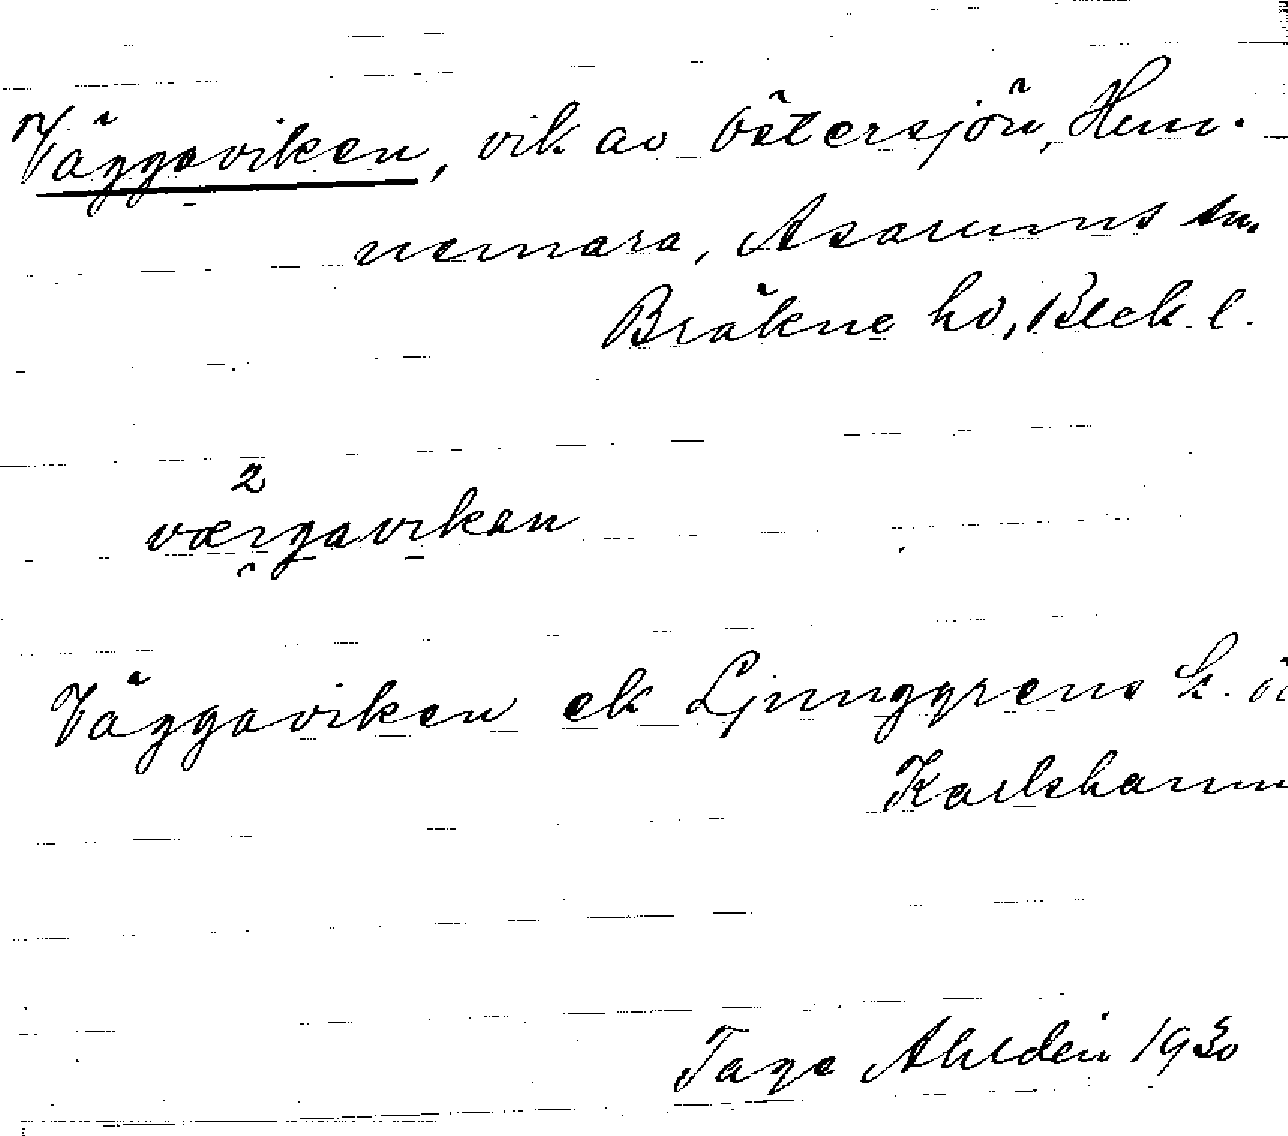 Väggaviken, vik av Östersjön, Hem-
memara, Asarums sn.
Bräkne hd, Blek. l.
2
værgaviken
Väggaviken ek Ljunggrens k. ö
Karlshamn
Tage Ahldén 1930